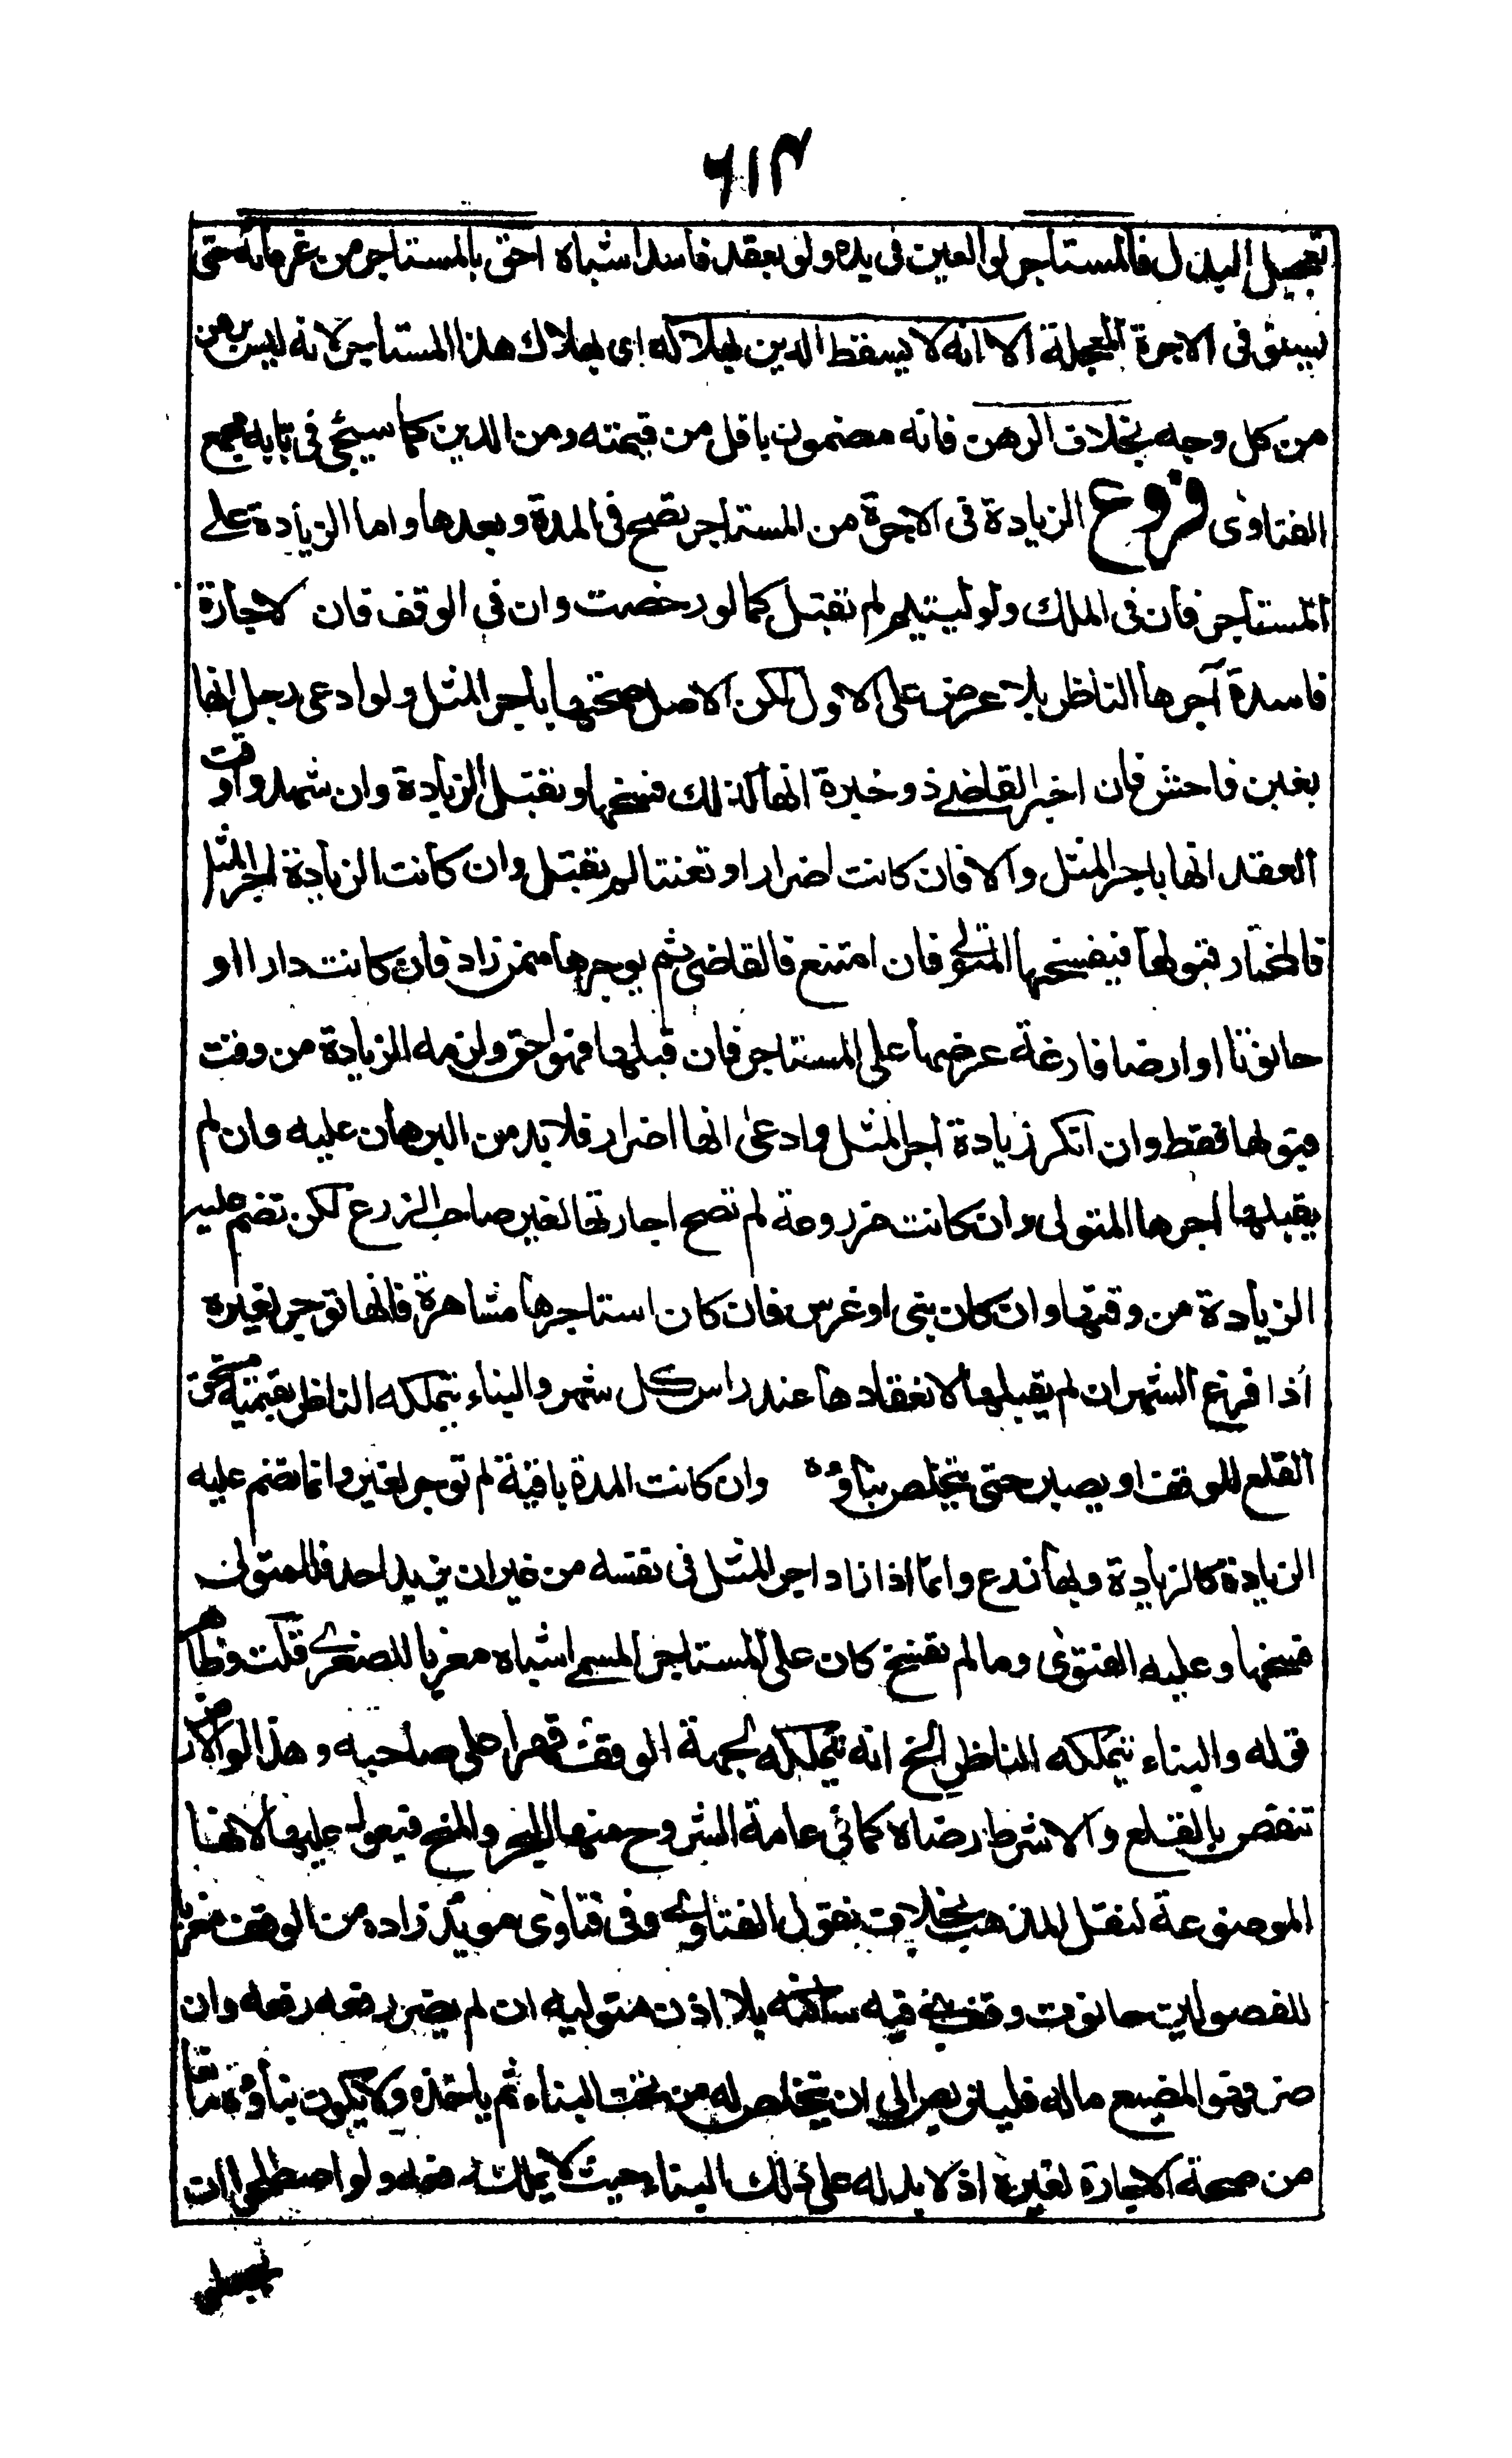 ٦١٣
تعجيل البدل فالمستاجر لو العين فى يده ولو بعقد فاسد اشباه احق بالمستاجر من غرمائه حتى
يستوفى الاجرة المعجلة الا انه لا يسقط الدين بهلاكه اى بهلاك هذا المستاجر لانه ليس برهن
من كل وجه بخلاف الرهن فانه مضمون باقل من قيمته ومن الدين كما سيجئ فى بابه مجمع
الفتاوى فروع الزيادة فى الاجرة من المستاجر تصح فى المدة وبعدها واما الزيادة على
المستاجر فان فى الملك ولو ليتيم لم تقبل كما لو رخصت وان فى الوقف فان الاجارة
فاسدة آجرها الناظر بلا عرض على الاول لكن الاصل صحتها باجر المثل ولو ادعى رجل انها
بغبن فاحش فان اخبر القاضى ذو خبرة انها كذلك فسخها وتقبل الزيادة وان شهدوا وقت
العقد انها باجر المثل والا فان كانت اضرارا وتعنتا لم تقبل وان كانت الزيادة اجر المثل
فالمختار قبولها فيفسخها المتولى فان امتنع فالقاضى ثم يوجرها ممن زاد فان كانت دارا او
حانوتا او ارضا فارغة عرضها على المستاجر فان قبلها فهو احق ولزمه الزيادة من وقت
قبولها فقط وان انكر زيادة اجر المثل وادعى انها اضرار فلا بد من البرهان عليه وان لم
يقبلها اجرها المتولى وان كانت مزروعة لم تصح اجارتها لغير صاحب الزرع لكن تضم عليه
الزيادة من وقتها وان كان بنى او غرس فان كان استاجرها مشاهرة فانها توجر لغيره
اذا فرغ الشهر ان لم يقبلها لانعقادها عند راس كل شهر والبناء يتملكه الناظر بقيمته مستحق
القلع للوقف او يصبر حتى يتخلص بناؤه وان كانت المدة باقية لم توجر لغيره وانما تضم عليه
الزيادة كالزيادة وبها زرع واما اذا زاد اجر المثل فى نفسه من غير ان يزيد احد فللمتولى
فسخها وعليه الفتوى وما لم تفسخ كان على المستاجر المسمى اشباه معزيا للصغرى قلت وظاهر
قوله والبناء يتملكه الناظر الخ انه يتملكه لجهة الوقف قهرا على صاحبه وهذا لو الارض
تنقص بالقلع والا شرط رضاه كما فى عامة الشروح منها البحر والمنح فيعول عليها لانها
الموضوعة لنقل المذهب بخلاف نقول الفتاوى وفى فتاوى مويد زاده من الوقف معزيا
للفصولين حانوت وقف بنى فيه ساكنه بلا اذن متوليه ان لم يضر رفعه رفعه وان
ضر فهو المضيع ماله فليتربص الى ان يتخلص له من تحت البناء ثم ياخذه ولا يكون بناؤه مانعا
من صحة الاجارة لغيره اذ لا يد له على ذلك البناء حيث لا يملك رفعه ولو اصطلحوا ان